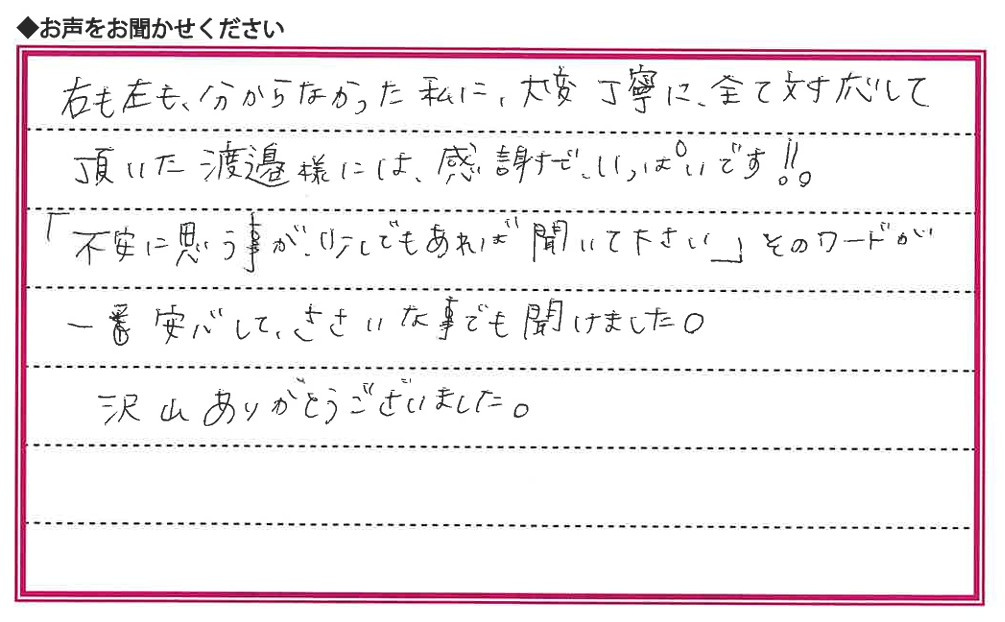 ◆お声をお聞かせください
右も左も、分からなかった私に、大変丁寧に、全て対応して
頂いた渡邉様には、感謝で、いっぱいです!!
「不安に思う事が、少しでもあれば聞いて下さい」そのワードが
一番安心して、ささいな事でも聞けました。
沢山ありがとうございました。